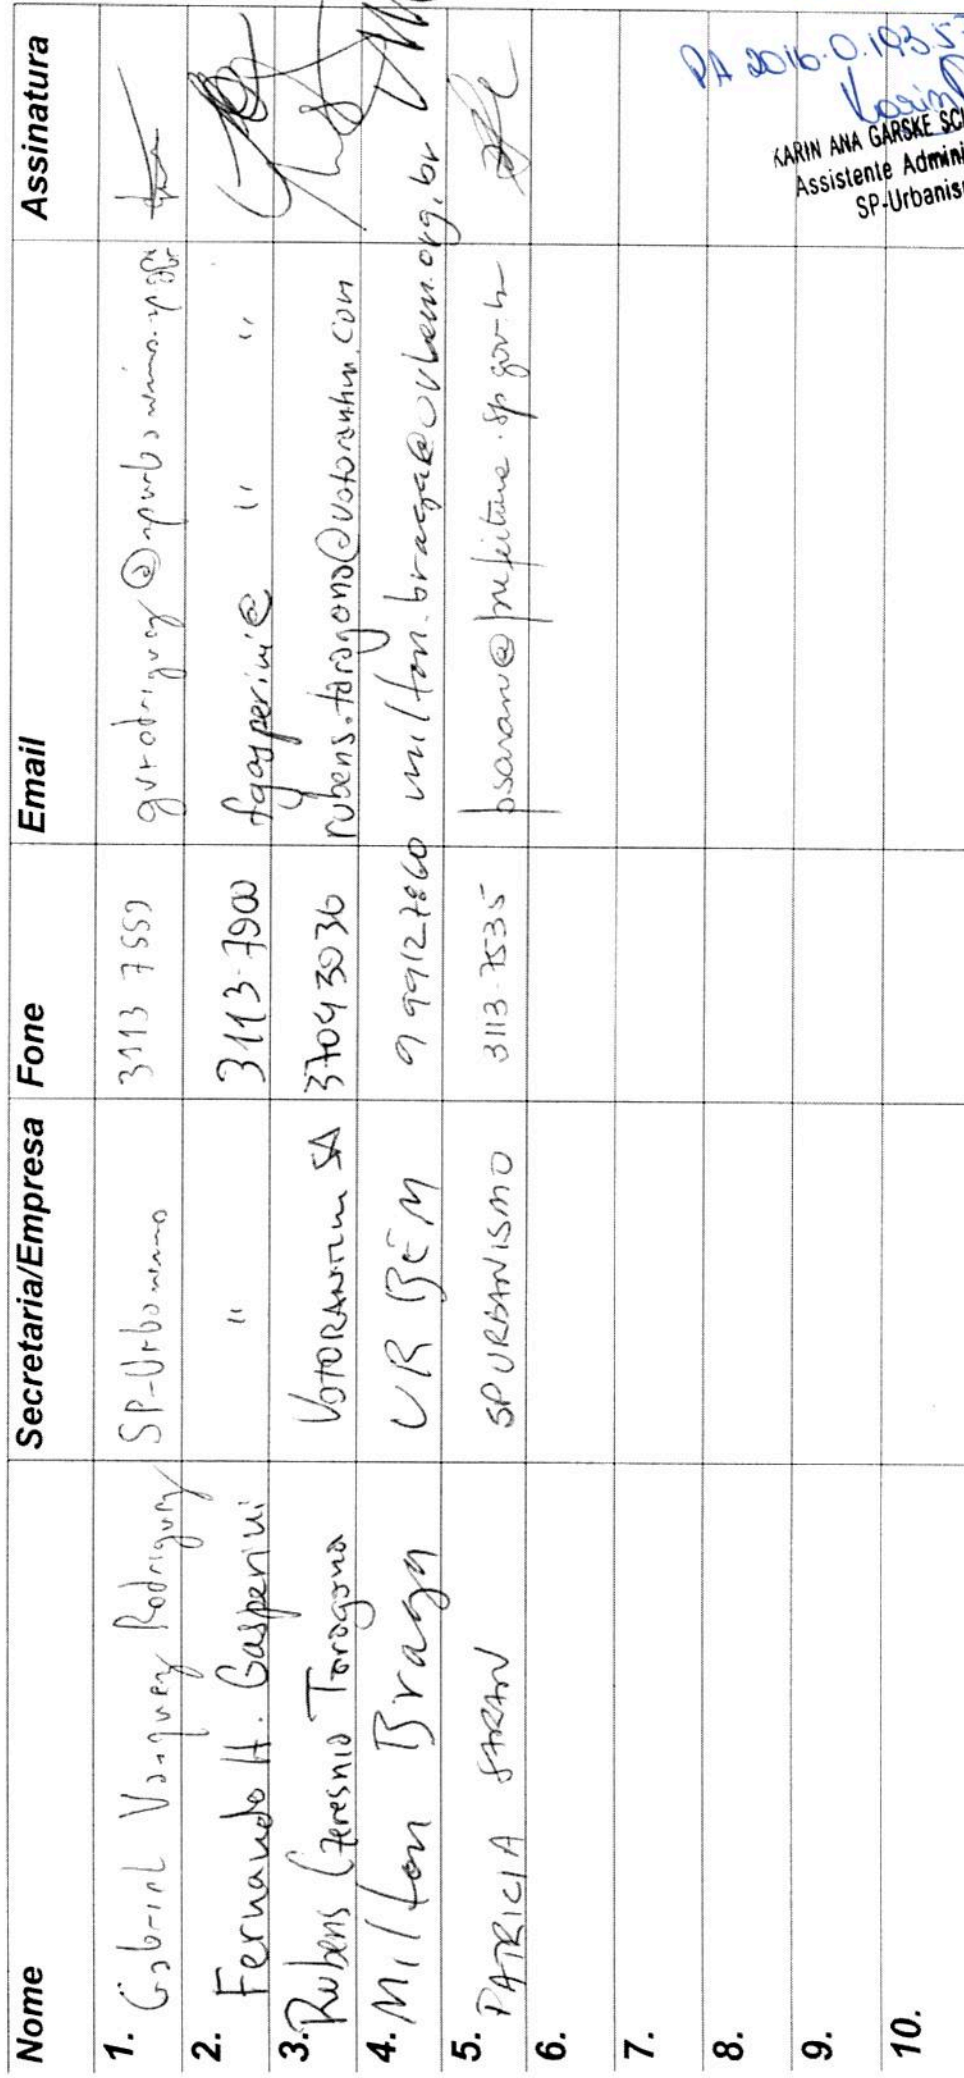 Nome Secretaria/Empresa Fone Email Assinatura
1. Gabriel Vazquez Rodriguez SP-Urbanismo 3113 7559
2. Fernando H. Gasperini " 3113-7900 fgasperini@ " "
3. Rubens Czeresnia Taragona VOTORANTIM SA 37043036 rubens.taragona@votorantim.com
4. Milton Braga URBEM 999127860 milton.braga@urbem.org.br
5. PATRICIA SARAN SP URBANISMO 3113-7535 psaran@prefeitura.sp.gov.br
6.
7.
8.
9.
10.
PA 2016-0.193.5
KARIN ANA GARSKE
Assistente
SP-Urbanis